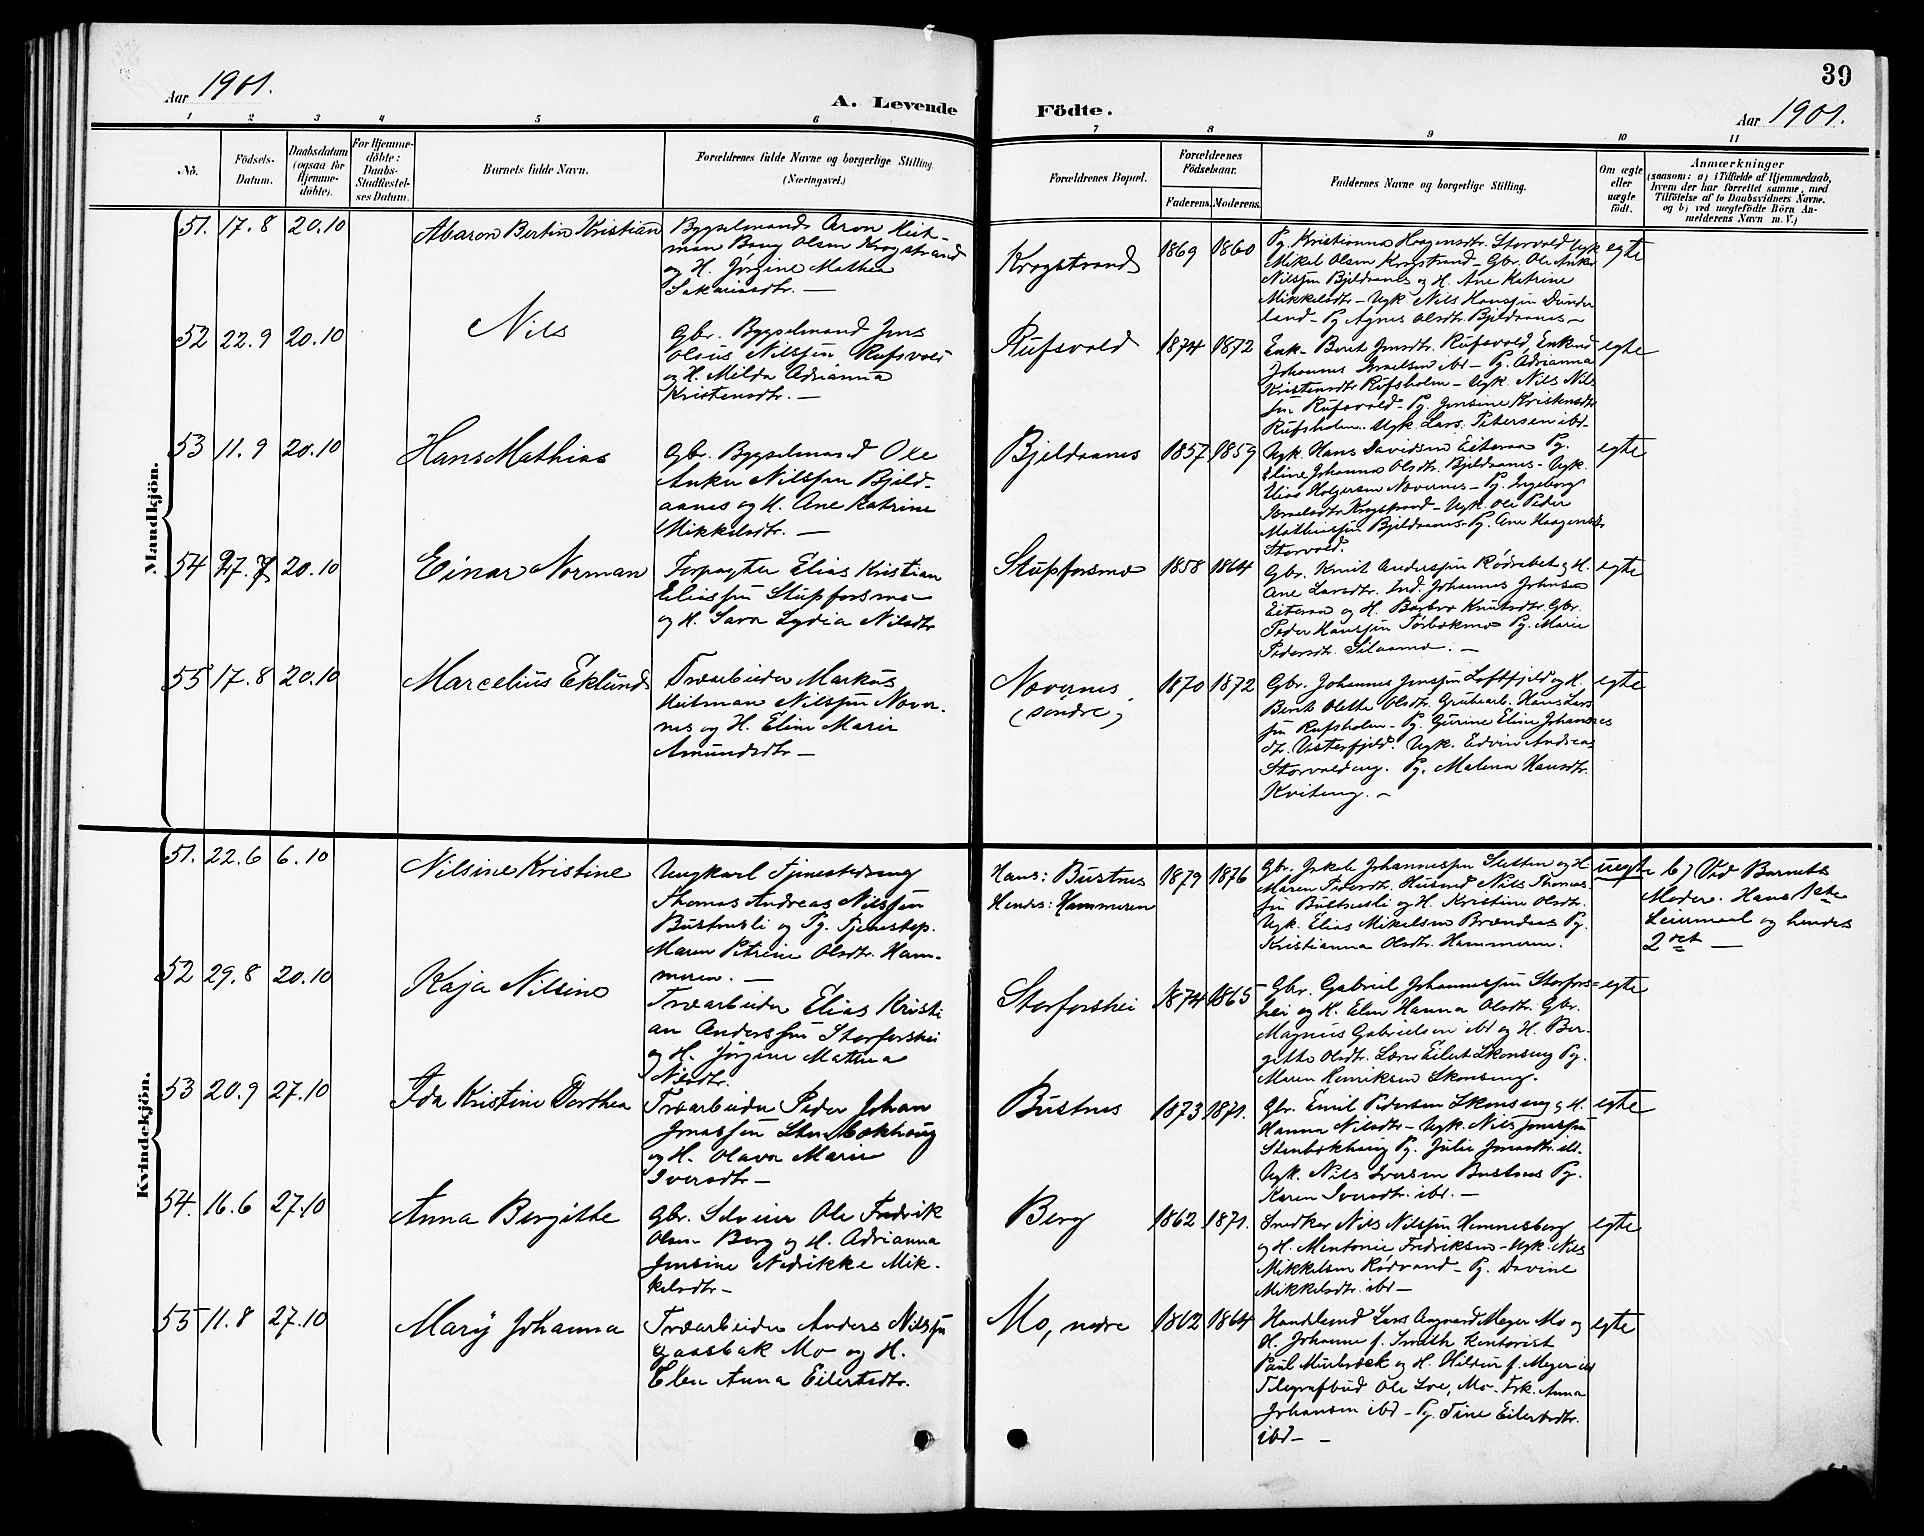 39
Aar 1901.
A. Levende Födte.
Aar 1901.
1 2 3 4 5 6 7 8 9 10 11
No.
Födsels-
Datum.
Daabsdatum
(ogsaa for
Hjemme-
döbte).
For Hjemme-
döbte:
Daabs-
Stadfæstel-
ses Datum.
Barnets fulde Navn.
Forældrenes fulde Navne og borgerlige Stilling.
(Næringsvei.)
Forældrenes Bopæl.
Forældrenes
Födselsaar.
Faderens. Moderens.
Faddernes Navne og borgerlige Stilling.
Om ægte
eller
uægte
födt.
Anmærkninger
(saasom: a) i Tilfælde af Hjemmedaab,
hvem der har forrettet samme, med
Tilföielse af to Daabsvidners Navne.
og b) ved uægtefödte Börn An-
melderens Navn m. V.)
Mandkjön.
51. 17.8 20.10
Abaron Bertin Kristian
Bygselmand Aron Heit-
man Berg Olsen Krogstrand
og H. Jørgine Mathea
Sakariasdtr. —
Krogstrand
1869 1860
Pg. Kristianna Haagensdtr. Storvold Ugk
Mikal Olsen Krogstrand – Gbr. Ole Anker
Nilssen Bjeldaanes og H. Ane Katrine
Mikkelsdtr – Ugk Nils Hanssen Dunder
land – Pg Agnes Olsdtr. Bjeldaanes –
egte
52 22.9 20.10
Nils
Gbr. Bygselmand Jens
Olsus Nilssen Rufsvold
og H. Milda Adrianna
Kristensdtr. —
Rufsvold
1874 1872
Enk – Berit Jensdtr. Rufsvold, Enkmd
Johannes Israelsen ibd – Pg. Adrianna
Kristensdtr Rufsholm – Ugk. Nils Nils
sen Rufsvold – Pg. Jensine Kristensdtr
Rufsholm. Ugk. Lars Petersen ibd–
egte
53 11.9 20.10
Hans Mathias
Gbr. Bygselmand Ole
Anker Nilssen Bjeld-
aanes og H. Ane Katrine
Mikkelsdtr. —
Bjeldaanes
1857 1859
Ugk. Hans Davidsen Eiteraa Pg.
Eline Johanna Olsdtr. Bjeldaanes – Ugk.
Elias Holgersen Nævernes – Pg. Ingeborg
Israelsdtr Krogstrand – Ugk. Ole Peder
Mathiassen Bjeldaanes – Pg. Ane Haagensdtr
Storvold.
egte
54 27.7 20.10
Einar Norman
Forpagter Elias Kristian
Eliassen Stupforsmo
og H. Sara Lydia Nilsdtr
Stupforsmo
1858 1864
Gbr. Knut Anderssen Rødsæbet og H.
Ane Larsdtr. Ind. Johannes Johnsen
Eiteraa og H. Barbro Knutsdtr. Gbr.
Peder Hanssen Tørbækmo Pg. Marie
Pedersdtr. Selaamo. –
egte
55 17.8 20.10
Marcelius Eklund
Træarbeider Markus
Heitman Nilssen Næver-
nes og H. Eline Marie
Amundsdtr —
Nævernes
(søndre)
1870 1872
Gbr. Johannes Jenssen Loftfjeld og H.
Berit Olette Olsdtr. Grubearb. Hans Lars
sen Rufsholm – Pg. Gurine Eline Johannes
dtr. Vesterfjeld. Ugk. Edvin Andreas
Storvoldeng. Pg. Malena Hansdtr.
Kviteng. –
egte
Kvindekjön.
51. 22.6 6.10
Nilsine Kristine
Ungkarl Tjenestedreng
Thomas Andreas Nilssen
Bustnesli og Pg. Tjenestep.
Maren Petrine Olsdtr. Ham-
meren. —
Hans: Bustnes
Hendes: Hammeren
1879 1876
Gbr. Jakob Johannessen Sletten og H.
Maren Pedersdtr. Husmd Nils Thomas-
sen Bustnesli og H. Kristine Olsdtr.
Ugk. Elias Mikelsen Brændaas Pg.
Kristianna Olsdtr. Hammeren.
uegte
b) Ved Barnets
Moder. Hans 1ste
Leiermaal og hendes
2det —
52 29.8 20.10
Kaja Nilsine
Træarbeider Elias Kristi
an Anderssen Storforshei
og H. Jørgine Mathea
Nilsdtr.
Storforshei
1874 1865
Gbr. Gabriel Johannessen Storfors-
hei og H. Elen Hanna Olsdtr. Gbr.
Magnus Gabrielsen ibd og H. Ber-
gitte Olsdtr. Lærer Eilert Skonseng Pg.
Maren Henriksen Skonseng.
egte
53 20.9 27.10
Ida Kristine Dorthea
Træarbeider Peder Johan
Jonassen Stenbækhaug
og H. Olava Marie
Iversdtr —
Bustnes
1873 1871.
Gbr. Emil Pedersen Skonseng og H.
Hanna Nilsdtr – Ugk. Nils Jonassen
Stenbækhaug Pg. Julie Jonasdtr ibd.
Ugk. Nils Iversen Bustnes Pg.
Karen Iversdtr. ibd. –
egte
54. 16.6 27.10
Anna Bergitte
Gbr. Selveier Ole Fredrik
Olsen Berg og H. Adrianna
Jensine Nedrikke Mik-
kelsdtr –
Berg
1862 1871.
Snedker Nils Nilssen Hemnesberg
og H. Mentonie Fredriksen – Ugk. Nils
Mikkelsen Rødvand – Pg. Davine
Mikkelsdtr. ibd –
egte
55 11.8 27.10
Mary Johanna
Træarbeider Anders Nilssen
Gaasbak Mo og H.
Elen Anna Eilertsdtr.
Mo, nedre
1862 1864
Handlend Lars Aagaard Meyer Mo og
H. Johanne f. Smith Kontorist
Paul Murbræk og H. Hildur f. Meyer ibd
Telegrafbud Ole Loe, Mo. Frk. Anna
Johansen ibd – Pg. Tine Eilertsdtr.
ibd – –
egte